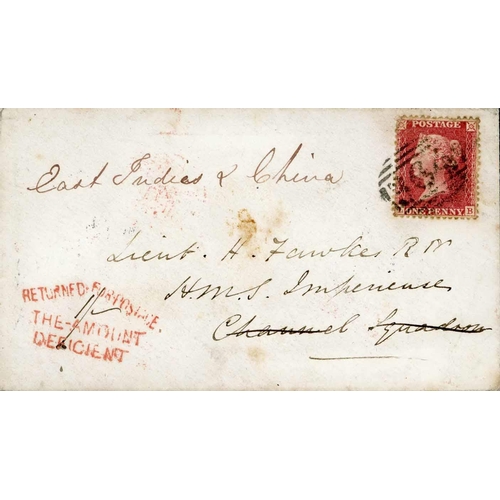 POSTAGE
ONE PENNY
East Indies & China
Lieut. H. Fawkes RN
H.M.S. Imperieuse
Channel Squadron
RETURNED-FOR-POSTAGE.
1/-
THE-AMOUNT
DEFICIENT